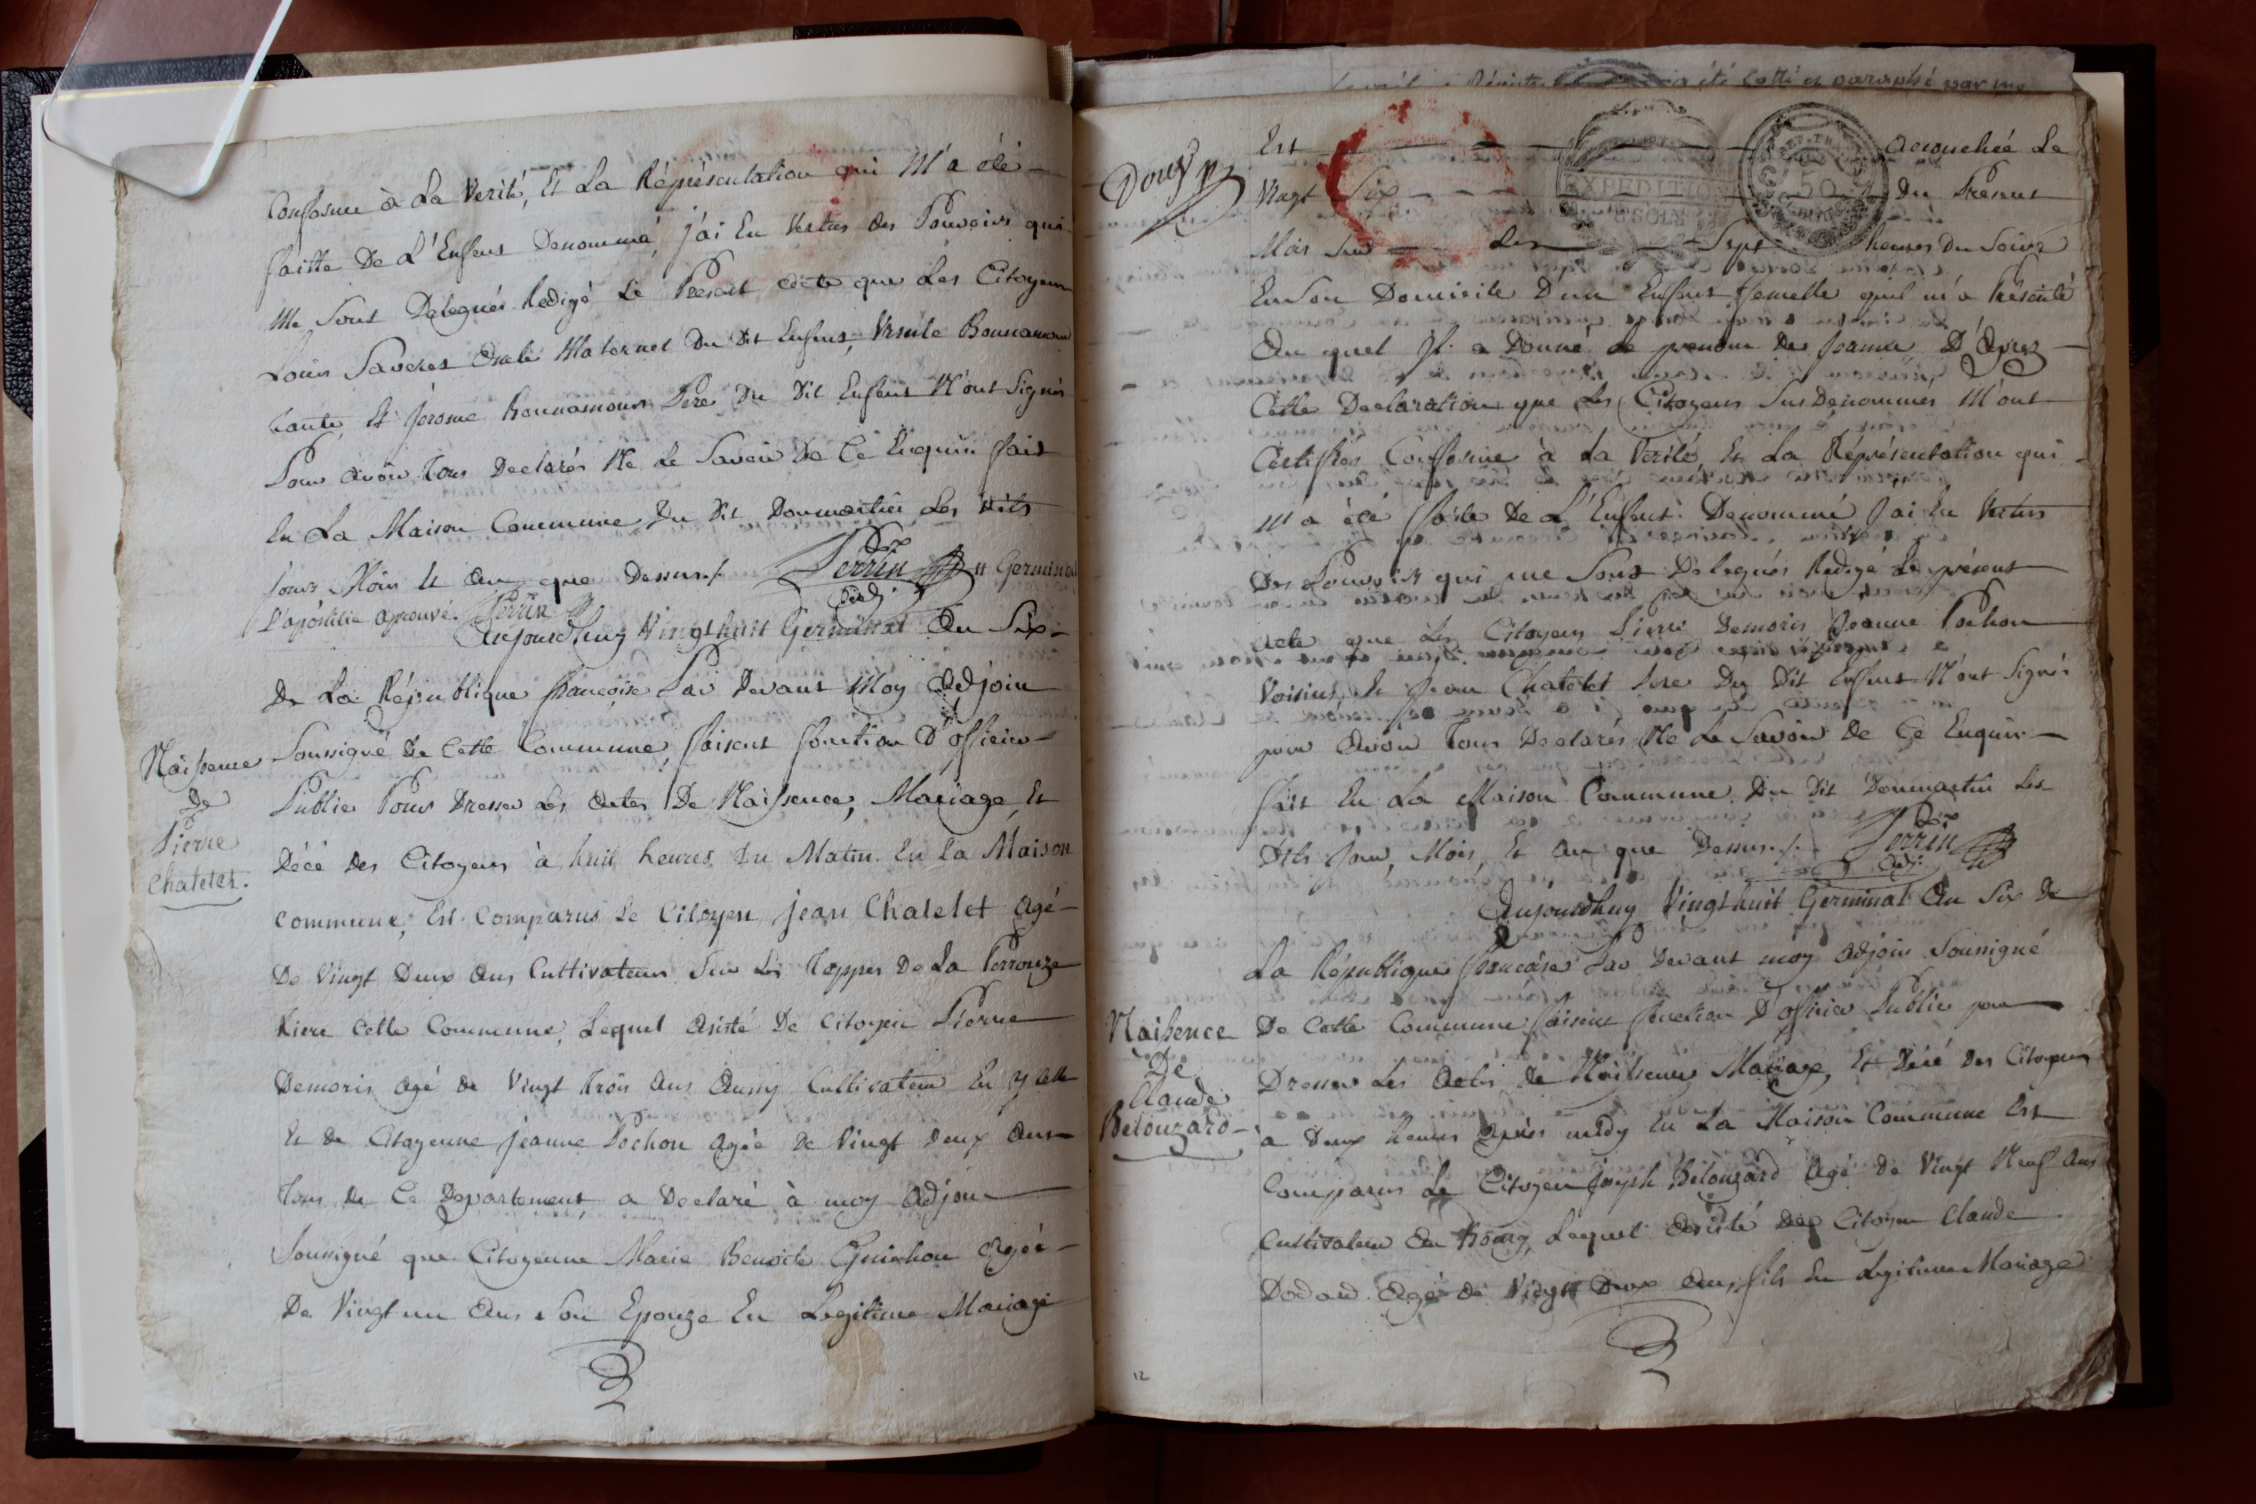 Conforme à La Verité, Et La Réprésentation qui M'a été
faitte De L'Enfent Denommé, j'ai En Vertus des Pouvoirs qui
Me Sont Delegués Redigé Le Present acte que Les Citoyens
Louis Maternel Du Dit Enfent, Ursule Bonnamour
tante, Et Jérome Bonnamour Pere Du Dit Enfent N'ont Signés
Pour avoir Tous Declarés Ne Le Savoir De Ce Enquis fait
En La Maison Commune Du Dit Dommartin Les dits
Jours Mois Et an que Dessus ./. Perrin adj. Germinal
L'apostille aprouvé. Perrin
Aujourdhuy Vingt huit Germinal An Six
De La République françoise Par Devant Moy Adjoin
Naissence
de
Pierre
Chatelet.
Soussigné De Cette Commune, faisent fonction D'officier
Public Pour Dresser Les Actes De Naissence, Mariage, Et
Décé Des Citoyens à huit heures Du Matin En La Maison
commune, Est Comparus Le Citoyen jean Chatelet agé
De Vingt Deux ans Cultivateur Sur Les De La
Riere Cette Commune, Lequel asisté De Citoyen Pierre
Demoris agé de Vingt trois Ans Aussy Cultivateur En y celle
Et de Citoyenne jeanne Pochon agée De Vingt deux Ans
Tous De Ce Departement a Declaré à moy Adjoin
Soussigné que Citoyenne Marie Benoite Guichon agée
De Vingt un Ans Son Epouze En Legitime Mariage
Est accouchée Le
Vingt Six Du Présent
Mois Sur Les Sept heures Du Soir
EXPEDITION
50
En Son Domicile D'un Enfent femelle quil m'a Présenté
Au quel Il a Donné Le prenom De Jeanne D'Après
Cette Declaration que Les Citoyens Sus Denommés M'ont
Certiffiés Conforme à La Verité, Et La Réprésentation qui
m'a été faite De L'Enfent Denommé J'ai En Vertus
Des Pouvoirs qui me Sont Delegués Redigé Le présent
acte que Les Citoyens Pierre Demoris Jeanne Pochon
Voisins, Et Jean Chatelet Pere Du Dit Enfent N'ont Signés
pour Avoir Tous Declarés Ne Le Savoir De Ce Enquis
fait En La Maison Commune Du Dit Dommartin Les
Dits Jour, Mois, Et An que Dessus ./. Perrin adj.
Aujourdhuy Vingt huit Germinal An Six De
La République françoise Par Devant moy adjoin Soussigné
Naissence
De
Claude
Belouzard
De Cette Commune faisent fonction D'officier Public pour
Dresser Les Actes De Naissence Mariage, Et Décé Des Citoyens
a Deux heures Après midy En La Maison Commune Est
Comparus Le Citoyen joseph Bélouzard Agé De Vingt Neuf Ans
Cultivateur Au Bourg, Lequel Assisté De Citoyen Claude
Dodard Agé De Vingt Deux Ans, fils En Legitime Mariage
12